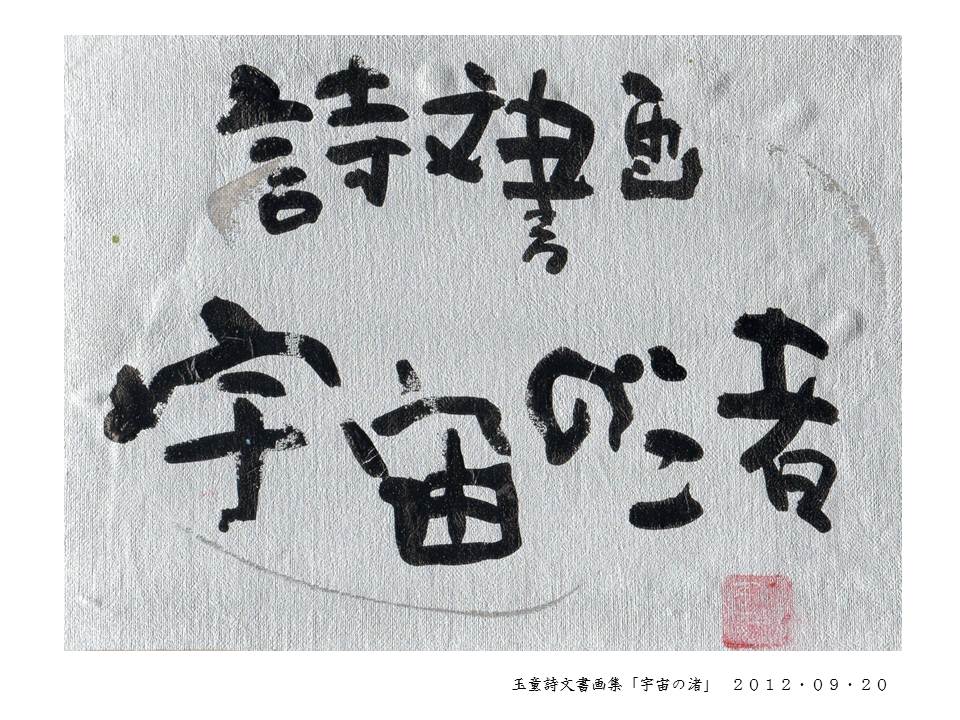 詩文書画
宇宙の渚
玉童詩文書画集「宇宙の渚」　２０１２・０９・２０